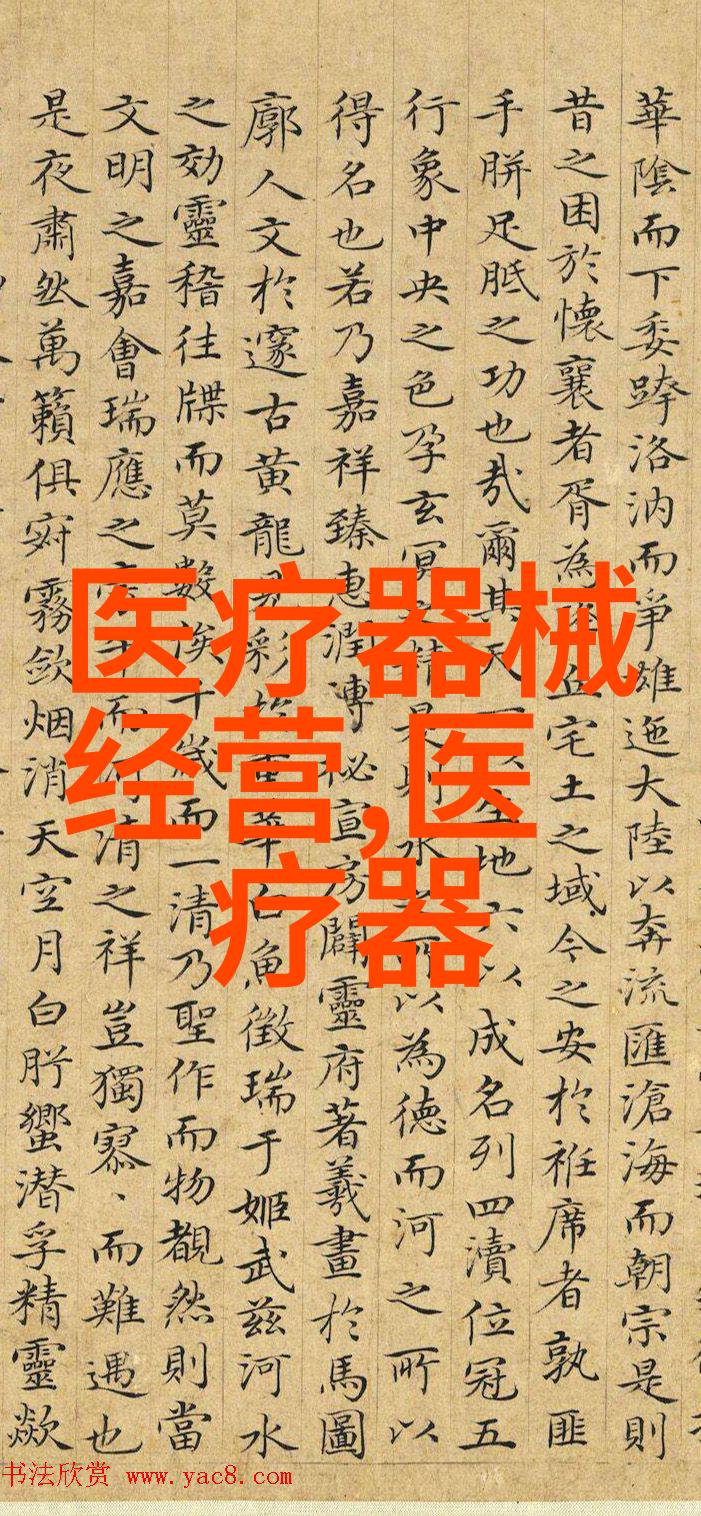 華陰而下委跨洛汭而爭雄迤大陸以奔流匯滄海而朝宗是則
昔之困於懷襄者胥為丘宅土之域今之安於袵席者孰匪
手胼足胝之功也哉爾其天一以生地六以成名列四瀆位冠五
行象中央之色孕玄冥之精是則水之所以為德而河之所以
得名也若乃嘉祥臻惠潤溥秘宣房闢靈府著羲畫於馬圖
廓人文於邃古黃龍見彩於重華白魚徵瑞于姬武茲河水
之効靈稽往牒而莫數俟千歲而一清乃聖作而物覩然則當
文明之嘉會瑞應之而河清之祥豈獨寥、而難遇也
是夜肅然萬籟俱寂霧斂烟消天空月白肸蠁潛孚精靈歘
医疗器械
经营,医
疗器
书法欣赏 www.yac8.com